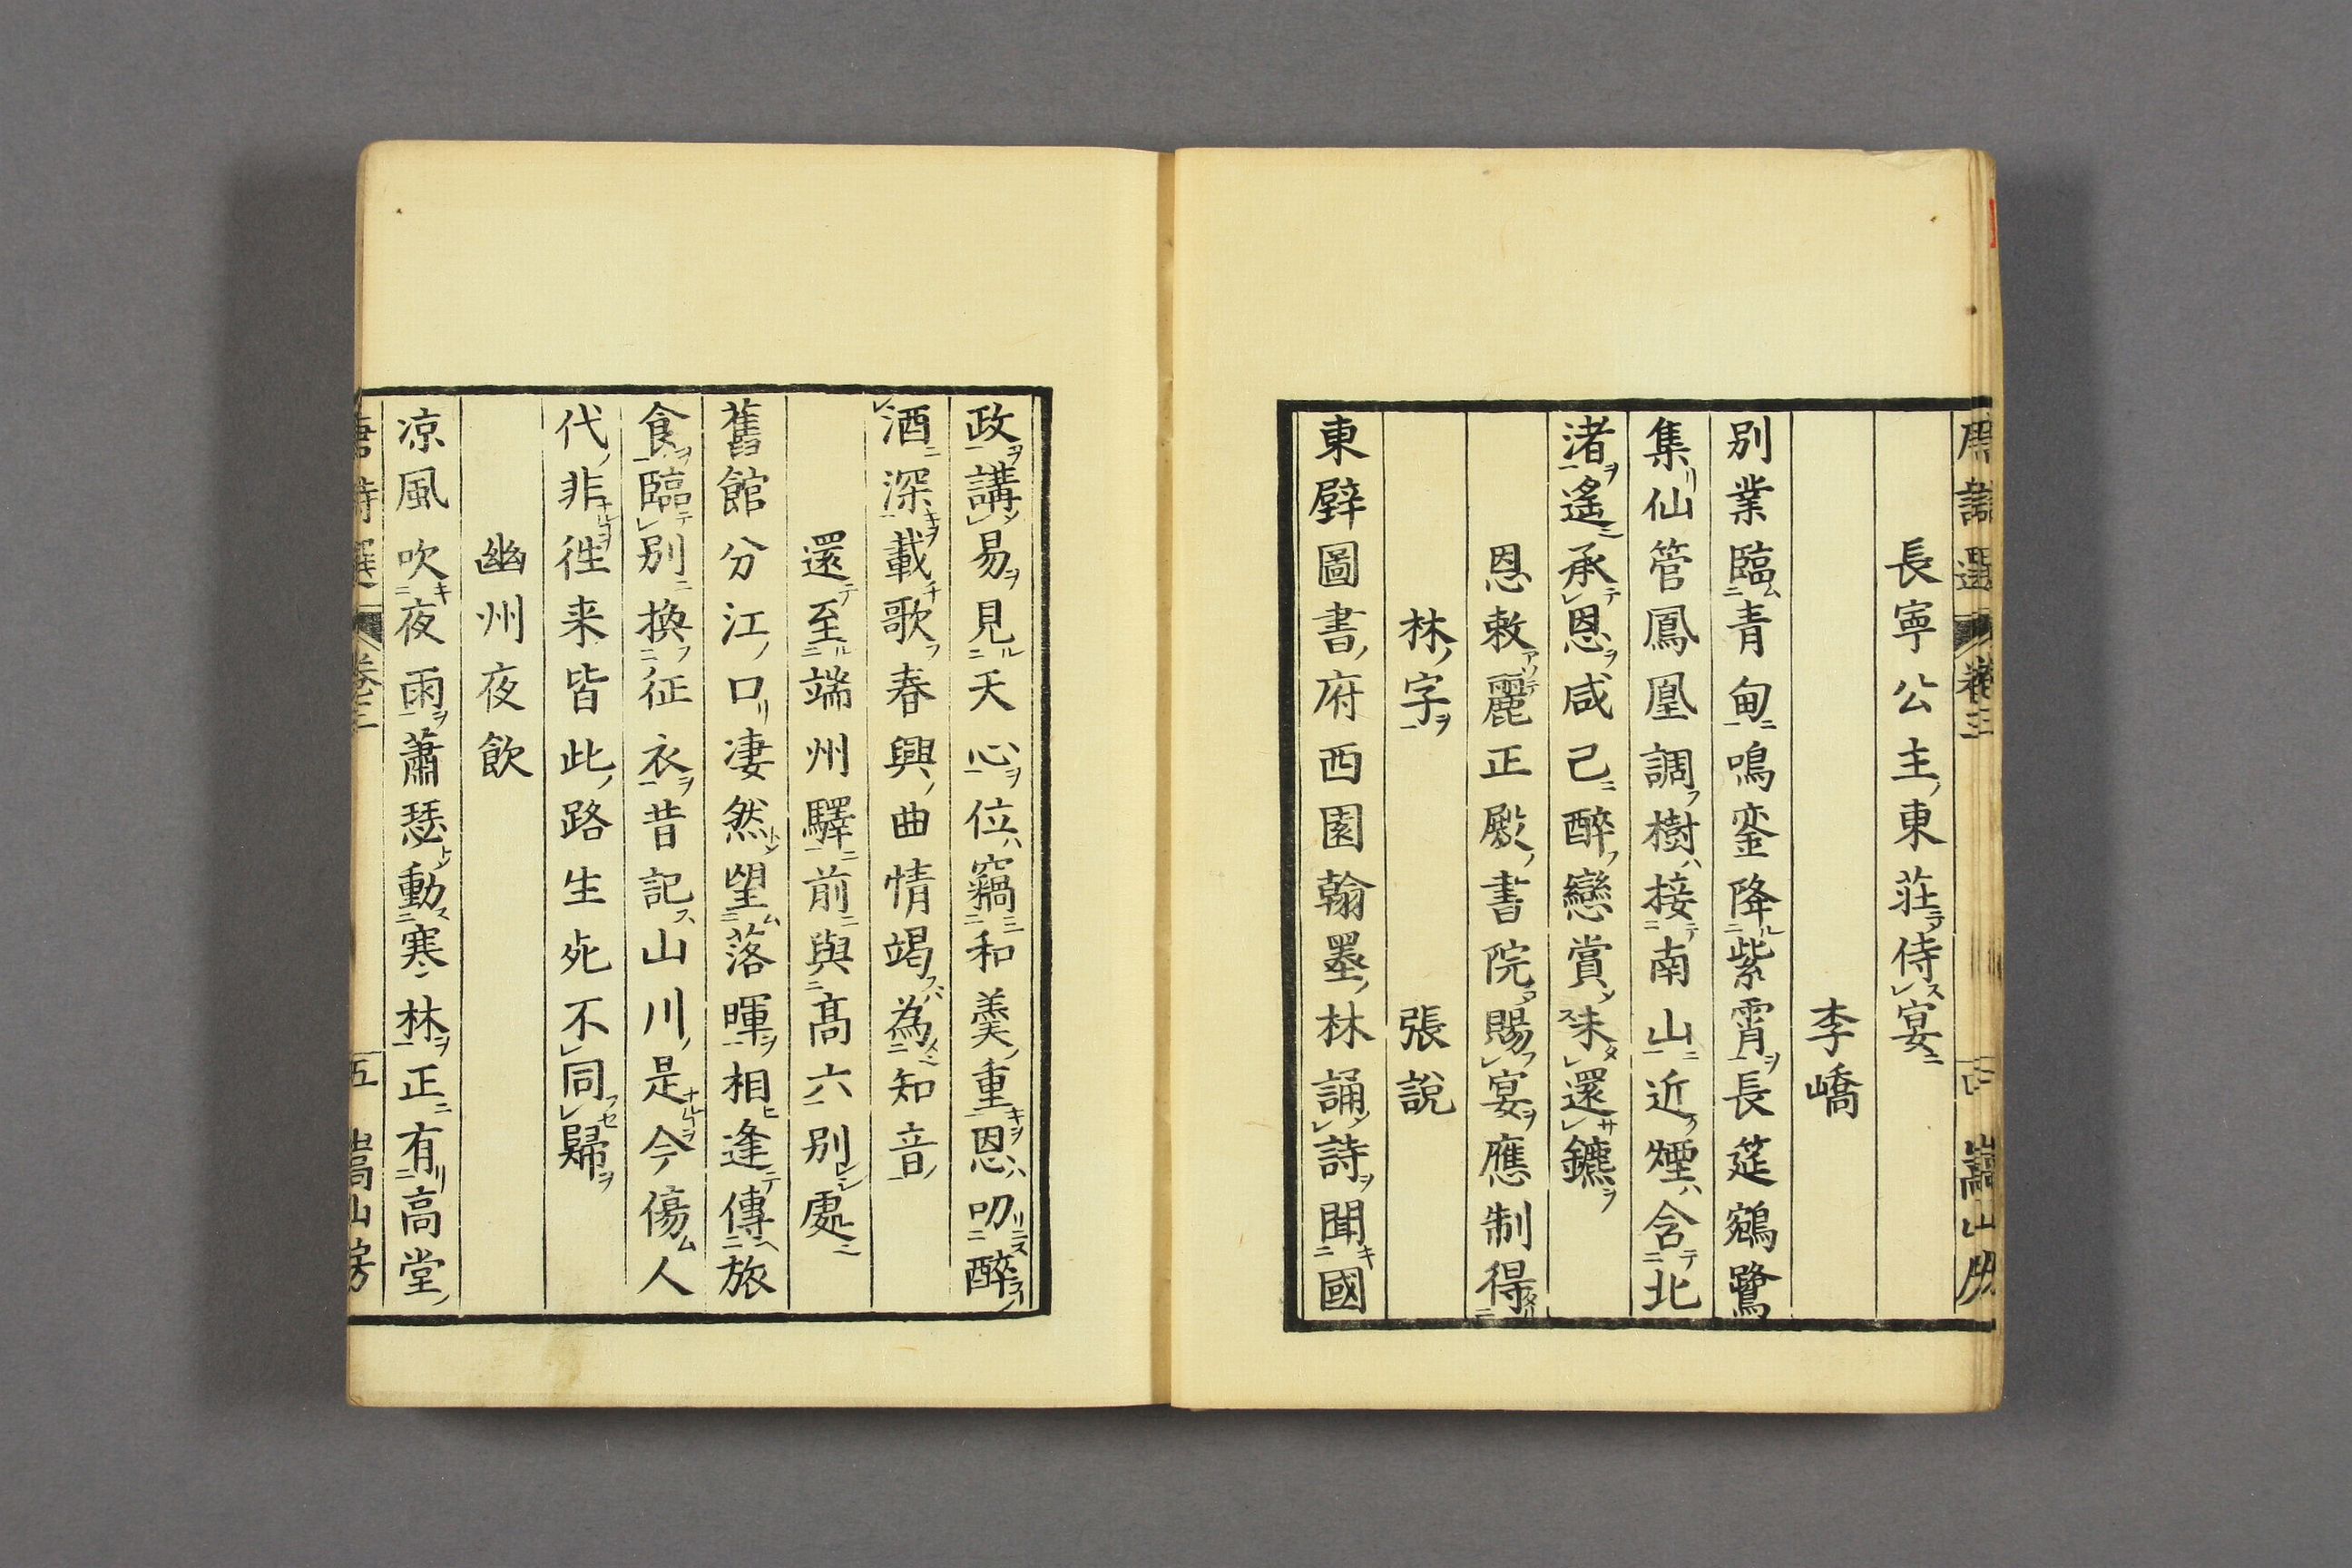 長寧公主東莊侍宴
李嶠
別業臨青甸鳴鑾降紫霄長筵鵷鷺
集仙管鳳凰調樹接南山近煙含北
渚遙承恩咸已醉戀賞未還鑣
恩敕麗正殿書院賜宴應制得
林字　張說
東壁圖書府西園翰墨林誦詩聞國
政講易見天心位竊和羹重恩叨醉
酒深載歌春興曲情竭為知音
還至端州驛前與高六別處
舊館分江口淒然望落暉相逢傳旅
食臨別換征衣昔記山川是今傷人
代非徃来皆此路生死不同歸
幽州夜飲
凉風吹夜雨蕭瑟動寒林正有高堂
唐詩選　卷三　五　嵩山房